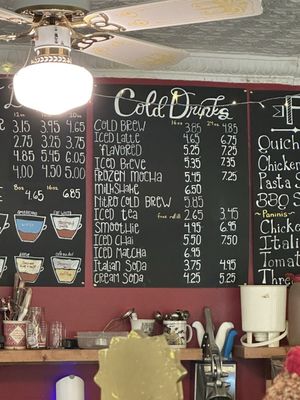 12oz 16oz 20oz
3.15 3.95 4.45
2.75 3.25 3.75
2.75 3.25 3.75
4.85 5.45 6.05
4.00 4.50 5.00
8oz 4.65 16oz 4.85
Americano
Flat White
Cold Drinks
16oz 24oz
Cold Brew 3.85 4.85
Iced Latte 4.65 6.75
flavored 5.25 7.25
Iced Breve 5.35 7.35
Frozen Mocha 5.45 7.25
Milkshake 6.50
Nitro Cold Brew 5.85
Iced Tea free refill 2.65 3.45
Smoothie 4.95 6.95
Iced Chai 5.50 7.50
Iced Matcha 6.95
Italian Soda 3.75 4.95
Cream Soda 4.25 5.25
Quich
Chicken
Pasta S
BBQ S
Paninis
Chicken
Italia
Italian
Three